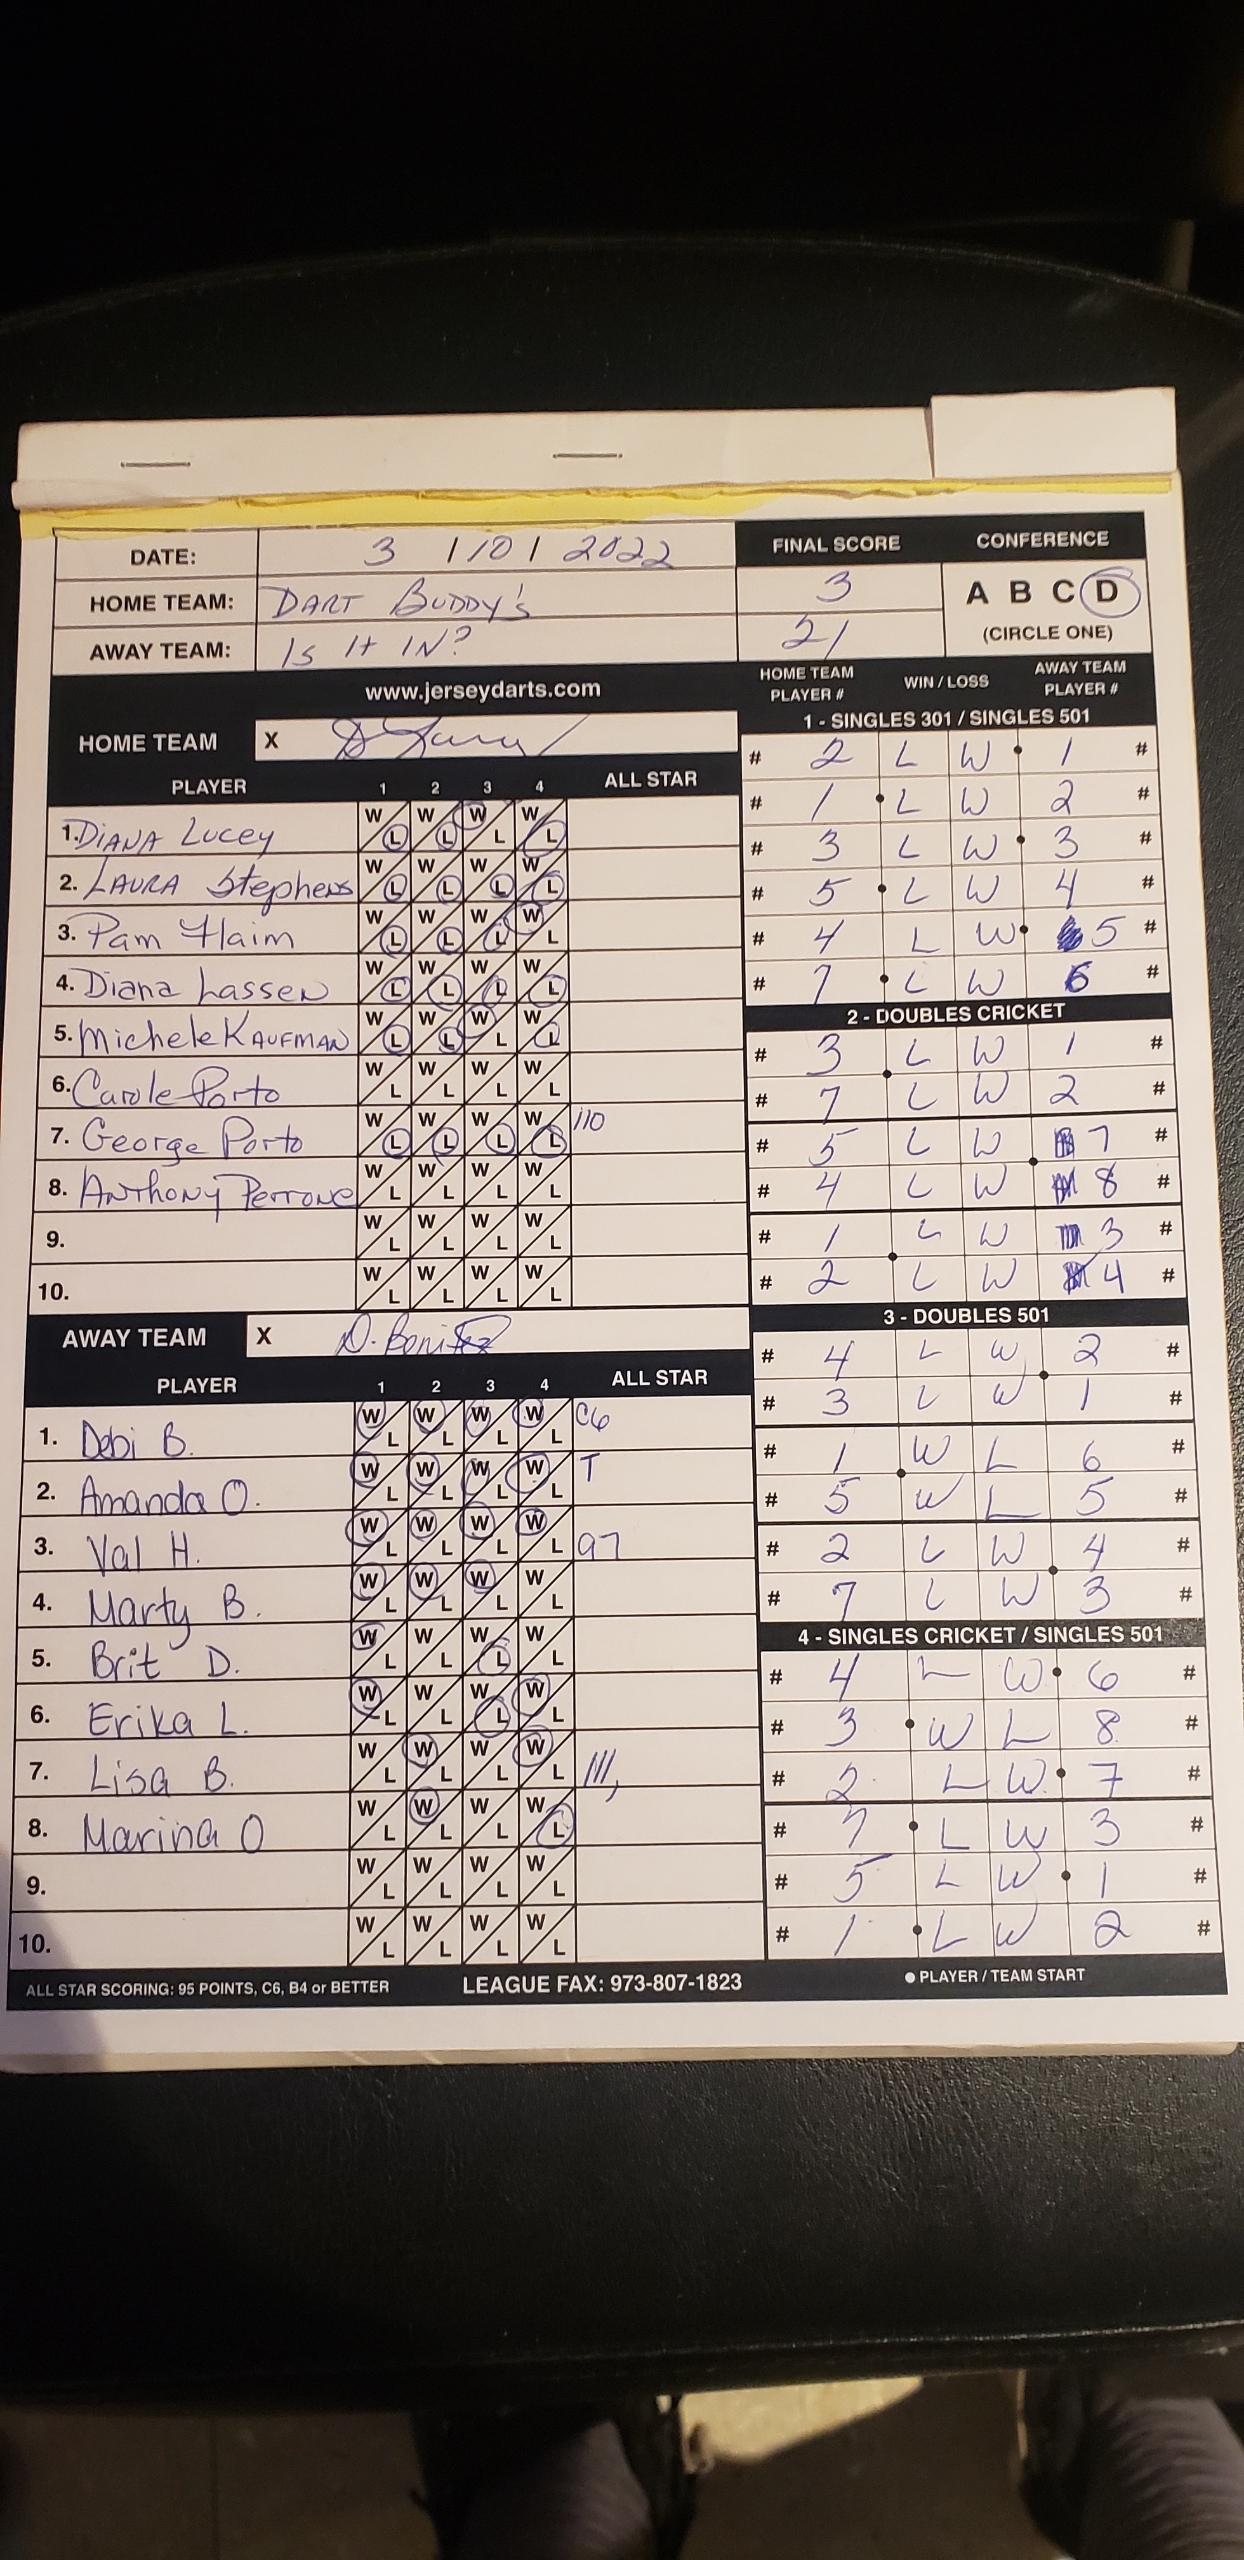 DATE: 3 / 10 / 2022
HOME TEAM: DART BUDDY's
AWAY TEAM: Is It IN?
FINAL SCORE
3
21
CONFERENCE
A B C D
(CIRCLE ONE)
www.jerseydarts.com
HOME TEAM X
PLAYER 1 2 3 4 ALL STAR
1. DIANA LUCEY W L W L W L W L
2. LAURA Stephens W L W L W L W L
3. Pam Flaim W L W L W L W L
4. Diana Lassen W L W L W L W L
5. Michele KAUFMAN W L W L W L W L
6. Carole Porto W L W L W L W L
7. George Porto W L W L W L W L 110
8. ANTHONY PERRONE W L W L W L W L
9. W L W L W L W L
10. W L W L W L W L
AWAY TEAM X D. Benitez
PLAYER 1 2 3 4 ALL STAR
1. Debi B. W L W L W L W L C6
2. Amanda O. W L W L W L W L T
3. Val H. W L W L W L W L 97
4. Marty B. W L W L W L W L
5. Brit D. W L W L W L W L
6. Erika L. W L W L W L W L
7. Lisa B. W L W L W L W L
8. Marina O W L W L W L W L
9. W L W L W L W L
10. W L W L W L W L
ALL STAR SCORING: 95 POINTS, C6, B4 or BETTER LEAGUE FAX: 973-807-1823
HOME TEAM PLAYER # WIN / LOSS AWAY TEAM PLAYER #
1 - SINGLES 301 / SINGLES 501
# 2 L W 1 #
# 1 L W 2 #
# 3 L W 3 #
# 5 L W 4 #
# 4 L W 5 #
# 7 L W 6 #
2 - DOUBLES CRICKET
# 3 L W 1 #
# 7 L W 2 #
# 5 L W 7 #
# 4 L W 8 #
# 1 L W 3 #
# 2 L W 4 #
3 - DOUBLES 501
# 4 L W 2 #
# 3 L W 1 #
# 1 W L 6 #
# 5 W L 5 #
# 2 L W 4 #
# 7 L W 3 #
4 - SINGLES CRICKET / SINGLES 501
# 4 L W 6 #
# 3 W L 8 #
# 2 L W 7 #
# 7 L W 3 #
# 5 L W 1 #
# 1 L W 2 #
● PLAYER / TEAM START